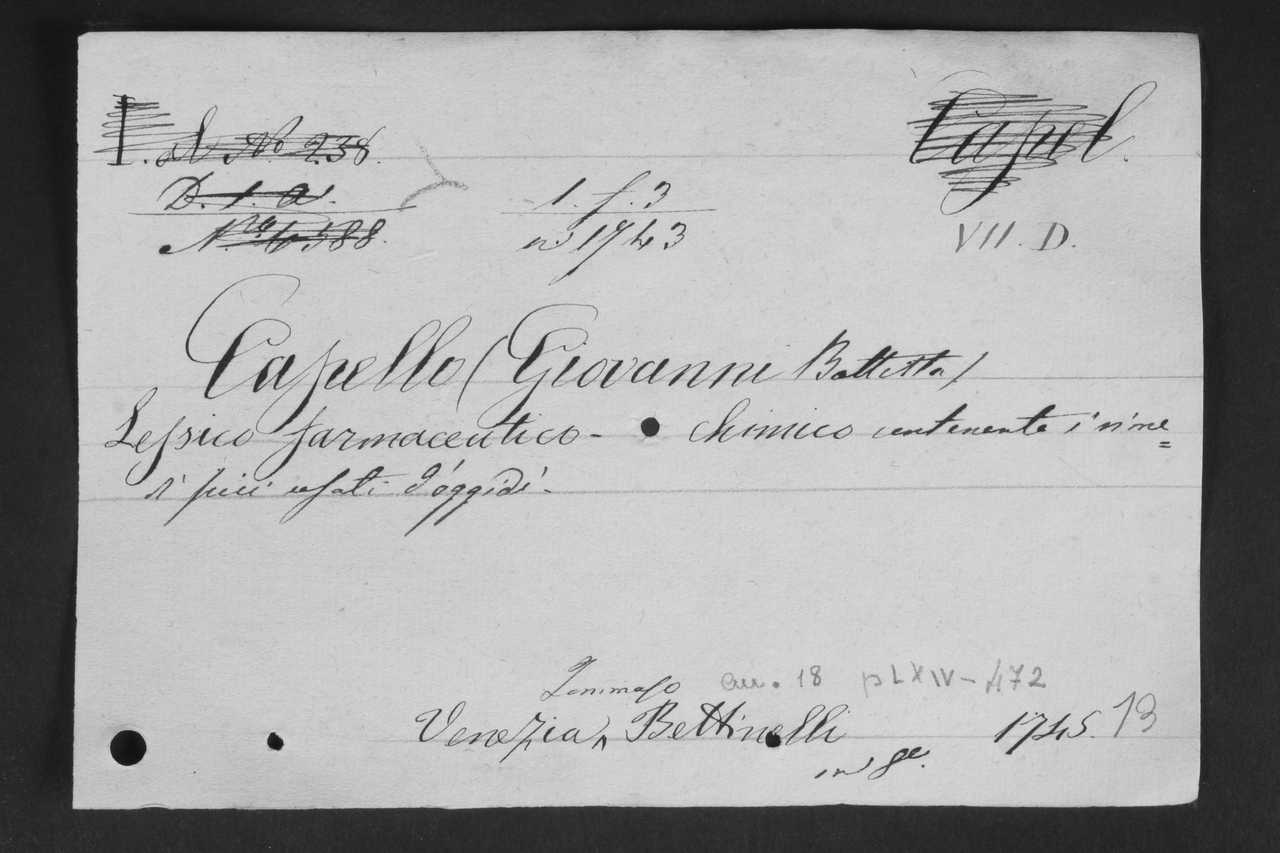 I. al No 238. Capel.
D. 1. a. 1. f. 3
Nro 6588. no 1743 VII. D.
Capello (Giovanni Battista)
Lessico farmaceutico - chimico contenente i rime=
di più usati d'oggidi -
Tommaso cm. 18 p LXIV - 472
Venezia, Bettinelli 1745. 13
in 8e.